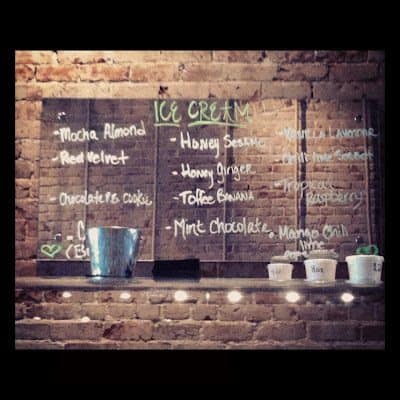 ICE CREAM
-Mocha Almond
-Red Velvet
-Chocolate & Cookie
-Honey Sesame
-Honey Ginger
-Toffee Banana
-Mint Chocolate
-Vanilla Lavender
-Chili Lime Sorbet
-Tropical
Raspberry
-Mango Chili
lime